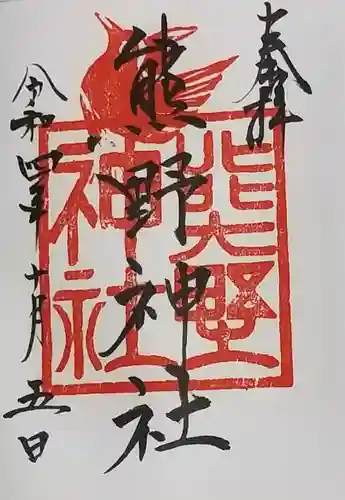 奉拝
熊野神社
令和四年十月五日
熊野
神社